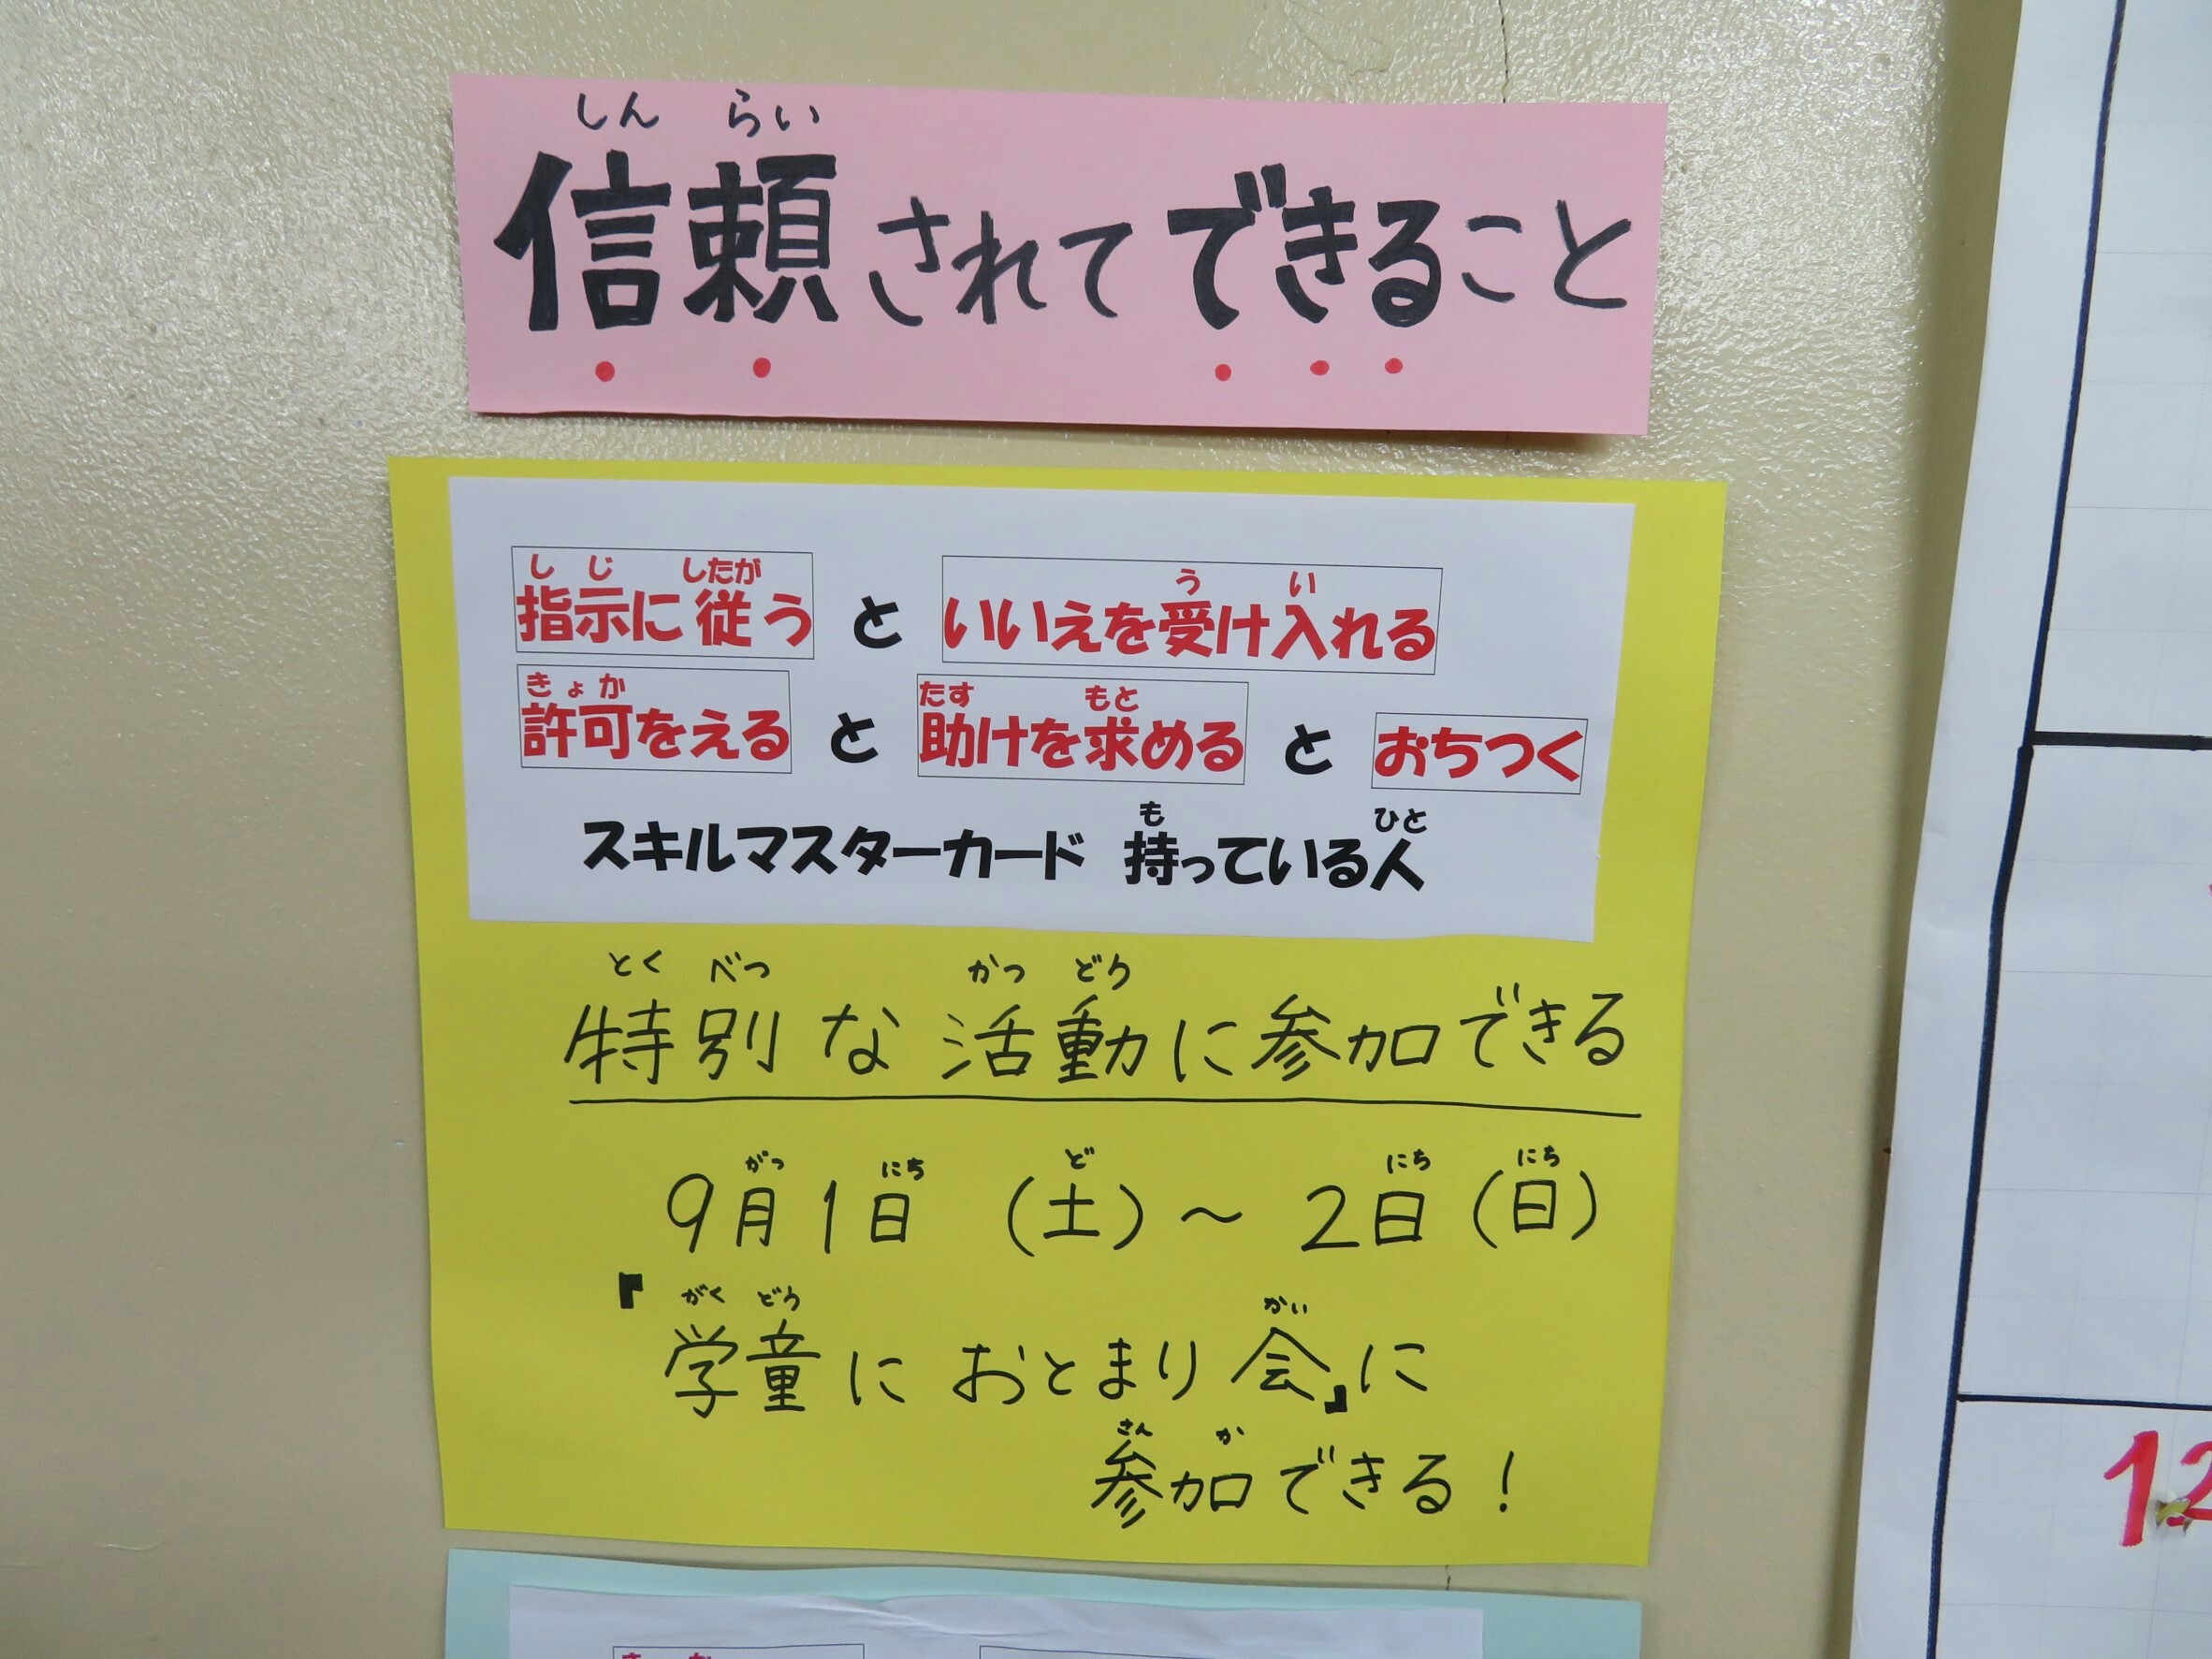 しん らい
信頼されてできること
し じ したが う い
指示に従う と いいえを受け入れる
きょ か たす もと
許可をえる と 助けを求める と おちつく
も ひと
スキルマスターカード 持っている人
とく べつ かつ どう
特別な活動に参加できる
がつ にち ど にち にち
9月1日 (土)～2日(日)
がく どう かい
『学童におとまり会』に
さん か
参加できる!
きょ か
12